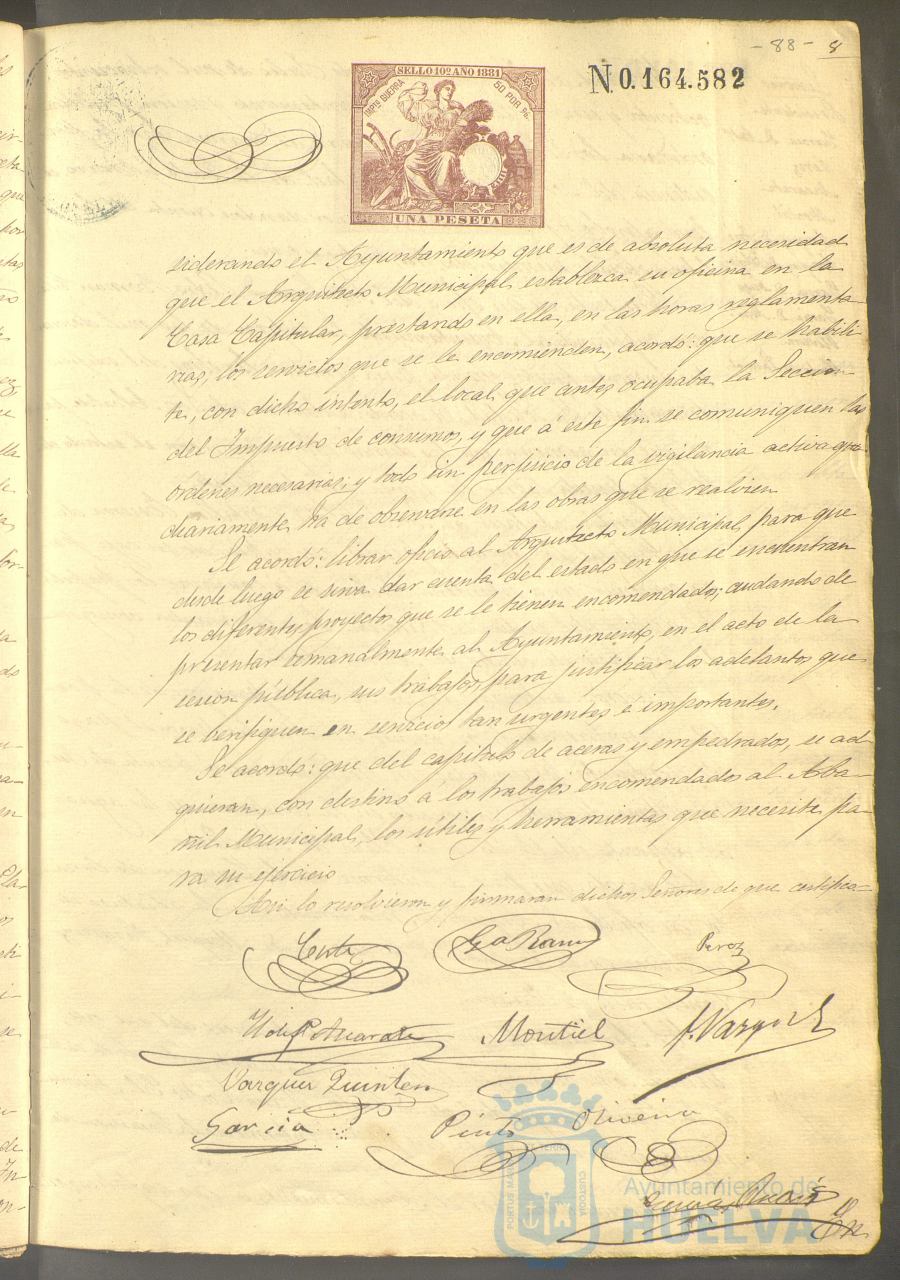 - 88 - 8
SELLO 10º AÑO 1881
IMPTO GUERRA 50 POR %
N 0.164.582
UNA PESETA
siderando el Ayuntamiento que es de absoluta necesidad
que el Arquitecto Municipal establezca su oficina en la
Casa Capitular, prestando en ella, en las horas reglamenta
rias, los servicios que se le encomienden, acordó: que se habili
te, con dicho intento, el local que antes ocupaba la Sección
del Impuesto de consumos, y que á este fin se comuniquen las
ordenes necesarias; y todo sin perjuicio de la vigilancia activa que
diariamente ha de observarse en las obras que se realicen
Se acordó: librar oficio al Arquitecto Municipal para que
desde luego se sirva dar cuenta del estado en que se encuentran
los diferentes proyectos que se le tienen encomendados; cuidando de
presentar semanalmente al Ayuntamiento, en el acto de la
sesion pública, sus trabajos, para justificar los adelantos que
se verifiquen en servicios tan urgentes é importantes.
Se acordó: que del capitulo de aceras y empedrados, se ad
quieran, con destino a los trabajos encomendados al Aba-
ñil Municipal, los útiles y herramientas que necesite pa-
ra su ejercicio
Asi lo resolvieron y firmaran dichos Señores de que certifico
Ga Ramos Perez
Montiel J. Vazquez
Vazquez
Garcia Pinto Oliveira
PORTUS MARIS ET TERRE CUSTODIA
Ayuntamiento de
HUELVA